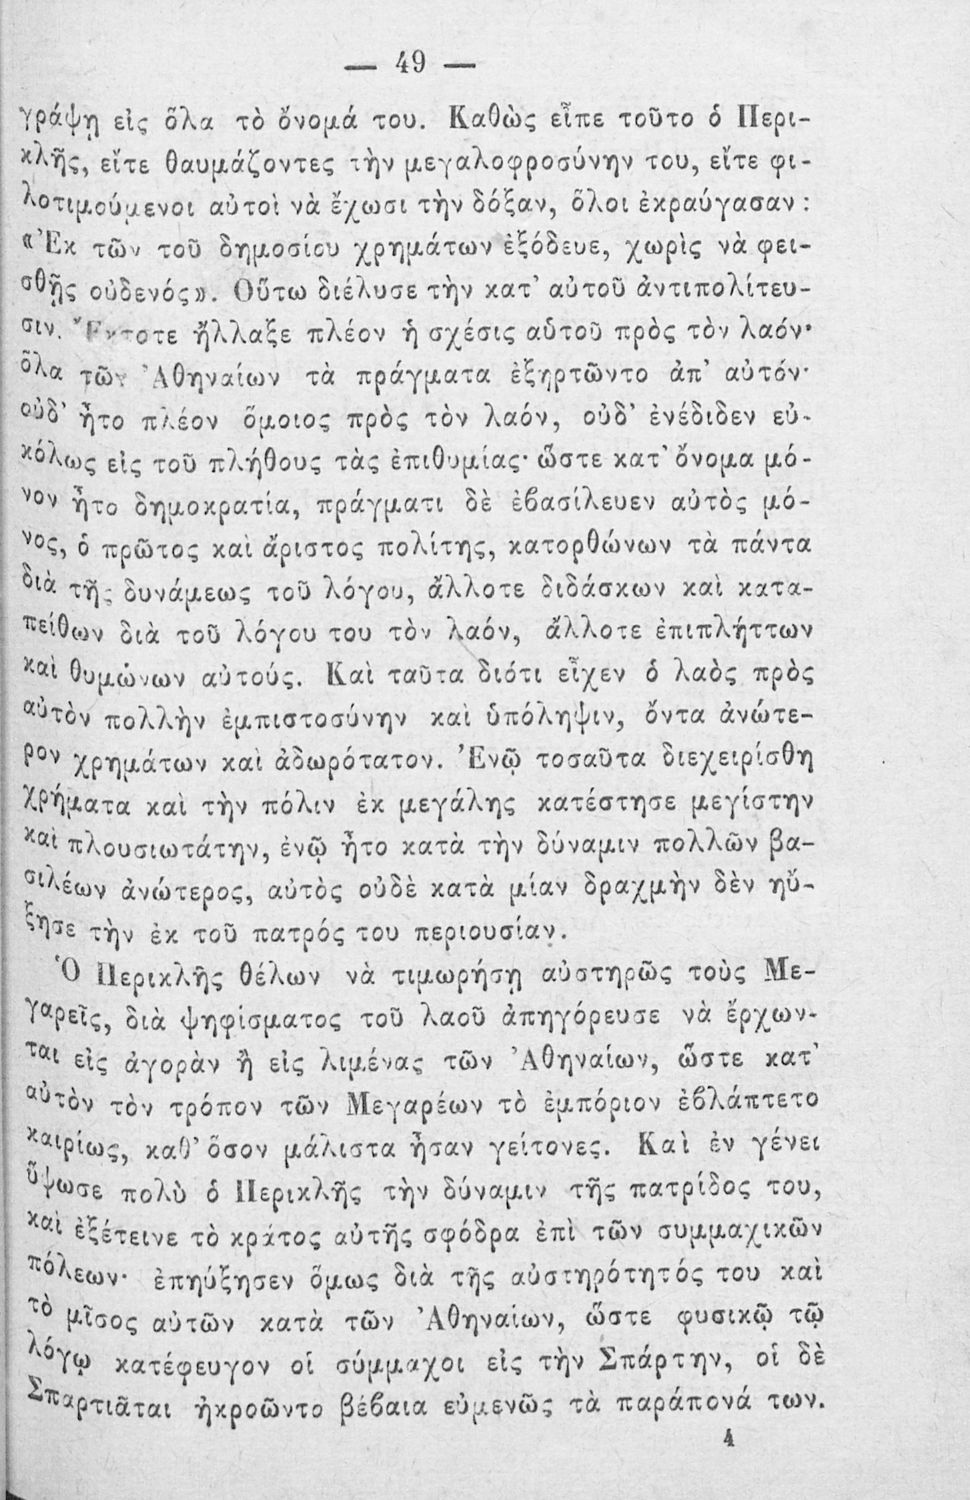 — 49 —
γράψῃ εἰς ὅλα τὸ ὄνομά του. Καθὼς εἶπε τοῦτο ὁ Περι-
κλῆς, εἴτε θαυμάζοντες τὴν μεγαλοφροσύνην του, εἴτε φι-
λοτιμούμενοι αὐτοὶ νὰ ἔχωσι τὴν δόξαν, ὅλοι ἐκραύγασαν:
«Ἐκ τῶν τοῦ δημοσίου χρημάτων ἐξόδευε, χωρὶς νὰ φει-
σθῇς οὐδενός». Οὕτω διέλυσε τὴν κατ' αὐτοῦ ἀντιπολίτευ-
σιν. Ἔκτοτε ἤλλαξε πλέον ἡ σχέσις αὑτοῦ πρὸς τὸν λαόν·
ὅλα τῶν Ἀθηναίων τὰ πράγματα ἐξηρτῶντο ἀπ' αὐτόν·
οὐδ' ἦτο πλέον ὅμοιος πρὸς τὸν λαόν, οὐδ' ἐνέδιδεν εὐ-
κόλως εἰς τοῦ πλήθους τὰς ἐπιθυμίας· ὥστε κατ' ὄνομα μό-
νον ἦτο δημοκρατία, πράγματι δὲ ἐβασίλευεν αὐτὸς μό-
νος, ὁ πρῶτος καὶ ἄριστος πολίτης, κατορθώνων τὰ πάντα
διὰ τῆς δυνάμεως τοῦ λόγου, ἄλλοτε διδάσκων καὶ κατα-
πείθων διὰ τοῦ λόγου του τὸν λαόν, ἄλλοτε ἐπιπλήττων
καὶ θυμώνων αὐτούς. Καὶ ταῦτα διότι εἶχεν ὁ λαὸς πρὸς
αὐτὸν πολλὴν ἐμπιστοσύνην καὶ ὑπόληψιν, ὄντα ἀνώτε-
ρον χρημάτων καὶ ἀδωρότατον. Ἐνῷ τοσαῦτα διεχειρίσθη
χρήματα καὶ τὴν πόλιν ἐκ μεγάλης κατέστησε μεγίστην
καὶ πλουσιωτάτην, ἐνῷ ἦτο κατὰ τὴν δύναμιν πολλῶν βα-
σιλέων ἀνώτερος, αὐτὸς οὐδὲ κατὰ μίαν δραχμὴν δὲν ηὔ-
ξησε τὴν ἐκ τοῦ πατρός του περιουσίαν.
Ὁ Περικλῆς θέλων νὰ τιμωρήσῃ αὐστηρῶς τοὺς Με-
γαρεῖς, διὰ ψηφίσματος τοῦ λαοῦ ἀπηγόρευσε νὰ ἔρχων-
ται εἰς ἀγορὰν ἢ εἰς λιμένας τῶν Ἀθηναίων, ὥστε κατ'
αὐτὸν τὸν τρόπον τῶν Μεγαρέων τὸ ἐμπόριον ἐβλάπτετο
καιρίως, καθ' ὅσον μάλιστα ἦσαν γείτονες. Καὶ ἐν γένει
ὕψωσε πολὺ ὁ Περικλῆς τὴν δύναμιν τῆς πατρίδος του,
καὶ ἐξέτεινε τὸ κράτος αὐτῆς σφόδρα ἐπὶ τῶν συμμαχικῶν
πόλεων· ἐπηύξησεν ὅμως διὰ τῆς αὐστηρότητός του καὶ
τὸ μῖσος αὐτῶν κατὰ τῶν Ἀθηναίων, ὥστε φυσικῷ τῷ
λόγῳ κατέφευγον οἱ σύμμαχοι εἰς τὴν Σπάρτην, οἱ δὲ
Σπαρτιᾶται ἠκροῶντο βέβαια εὐμενῶς τὰ παράπονά των.
4